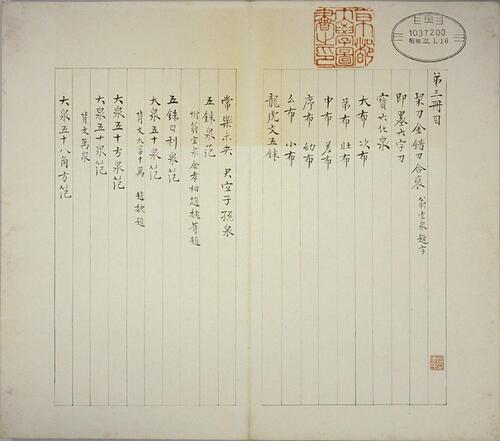 京都
大學圖
書之印
1037200
昭和32.1.16
第三冊目
栔刀金錯刀合裝 翁宜泉題字
即墨六字刀
寶六化泉
大布 次布
弟布 壯布
中布 差布
序布 幼布
幺布 小布
龍虎文五銖
常樂未央 君宜子孫泉
五銖泉笵
附翁宜泉金孝柏趙魏等題
五銖日利泉笵
大泉五十泉笵
背文大富千萬 趙魏題
大泉五十方泉笵
大泉五十泉笵
背文萬泉
大泉五十八角方笵